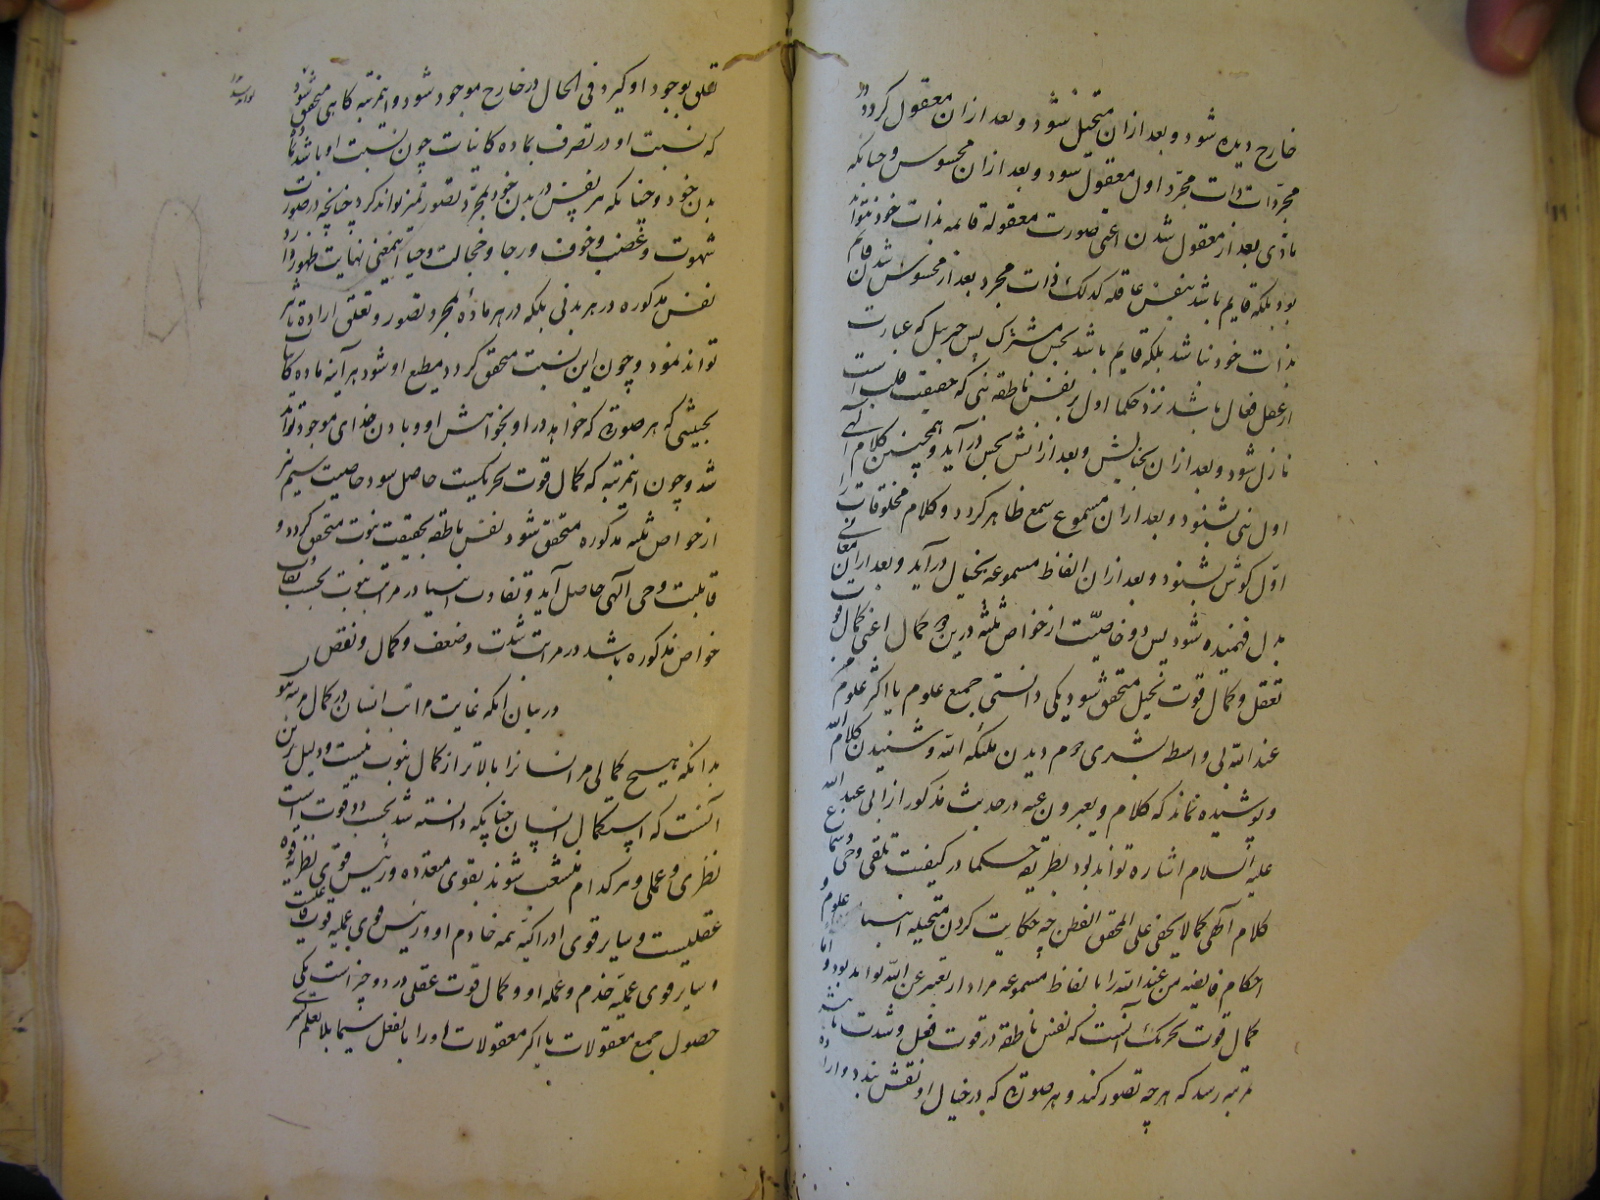 خارج دیده شود و بعد ازان متخیل شود و بعد ازان معقول گردد و در
مجردات ذات مجرد اول معقول شود و بعد ازان محسوس و چنانکه
مادی بعد از معقول شدن اعنی صورت معقوله قائمه بذات خود نتواند
بود بلکه قایم باشد بنفس عاقله کذلک ذات مجرد بعد از محسوس شدن قایم
بذات خود نباشد بلکه قایم باشد بحس مشترک پس جبرییل که عبارت
از عقل فعال باشد نزد حکما اول بر نفس ناطقه نبی که حقیقت قلب است
نازل شود و بعد ازان بخیالش و بعد ازانش بحس در آید و همچنین کلام الهی
اول نبی بشنود و بعد ازان مسموع سمع ظاهر گردد و کلام مخلوقات را
اول گوش بشنود و بعد ازان الفاظ مسموعه بخیال در آید و بعد ازان معانی
بدل فهمیده شود پس دو خاصیت از خواص ثلثه درین دو کمال اعنی کمال قوت
تعقل و کمال قوت تخیل متحقق شود یکی دانستن جمیع علوم یا اکثر علوم من
عند الله بی واسطه بشری دوم دیدن ملئکه الله و شنیدن کلام الله
و پوشیده نماند که کلام و یعبرون عنه در حدیث مذکور از ابی عبد الله
علیه السلام اشاره تواند بود بطریقه حکما در کیفیت تلقی وحی و سماع
کلام الهی کما لا یخفی علی المحقق الفطن چه حکایت کردن متخیله انبیا علوم و
احکام فایضه من عند الله را بالفاظ مسموعه مراد از تعبیر عن الله تواند بود و اما
کمال قوت تحریک آنست که نفس ناطقه در قوت فعل و شدت تاثیر
بمرتبه رسد که هر چه تصور کند و هر صورتی که در خیال او نقش بندد و اراده
تعلق بوجود او گیرد فی الحال در خارج موجود شود و اینمرتبه گاهی متحقق شود
که نسبت او در تصرف بماده کاینات چون نسبت او باشد بماده
بدن خود و چنانکه هر نفس در بدن خود بمجرد تصور تمیز تواند کرد چنانچه در صورت
شهوت و غضب و خوف و رجا و خجالت و حیا اینمعنی نهایت ظهور دارد
نفس مذکوره در هر بدنی بلکه در هر ماده بمجرد تصور و تعلق اراده تاثیر
تواند نمود و چون این نسبت متحقق گردد مطیع او شود هر آینه ماده کاینات
بحیثی که هر صورت که خواهد در او بخواهش او و باذن خدای موجود تواند
شد و چون اینمرتبه که کمال قوت تحریکست حاصل شود خاصیت سیم نیز
از خواص ثلثه مذکوره متحقق شود نفس ناطقه بحقیقت نبوت متحقق گردد و
قابلیت وحی الهی حاصل آید و تفاوت انبیا در مراتب نبوت بحسب تفاوت
خواص مذکوره باشد در مراتب شدت و ضعف و کمال و نقص
در بیان آنکه غایت مراتب انسان در کمال مرتبه نبوتست
بدانکه هیچ کمالی مر انسانرا بالاتر از کمال نبوت نیست و دلیل برین
آنست که استکمال انسان چنانکه دانسته شد بحسب دو قوت است
نظری و عملی و هر کدام منشعب شوند بقوی متعدده و رئیس قوی نظریه قوه
عقلیست و سایر قوی ادراکیه همه خادم او و رئیس قوی عملیه قوت
و سایر قوی عملیه خدم و عمله او و کمال قوت عقلی در دو چیز است یکی
حصول جمیع معقولات یا اکثر معقولات او را بالفعل سیما بلا تعلم